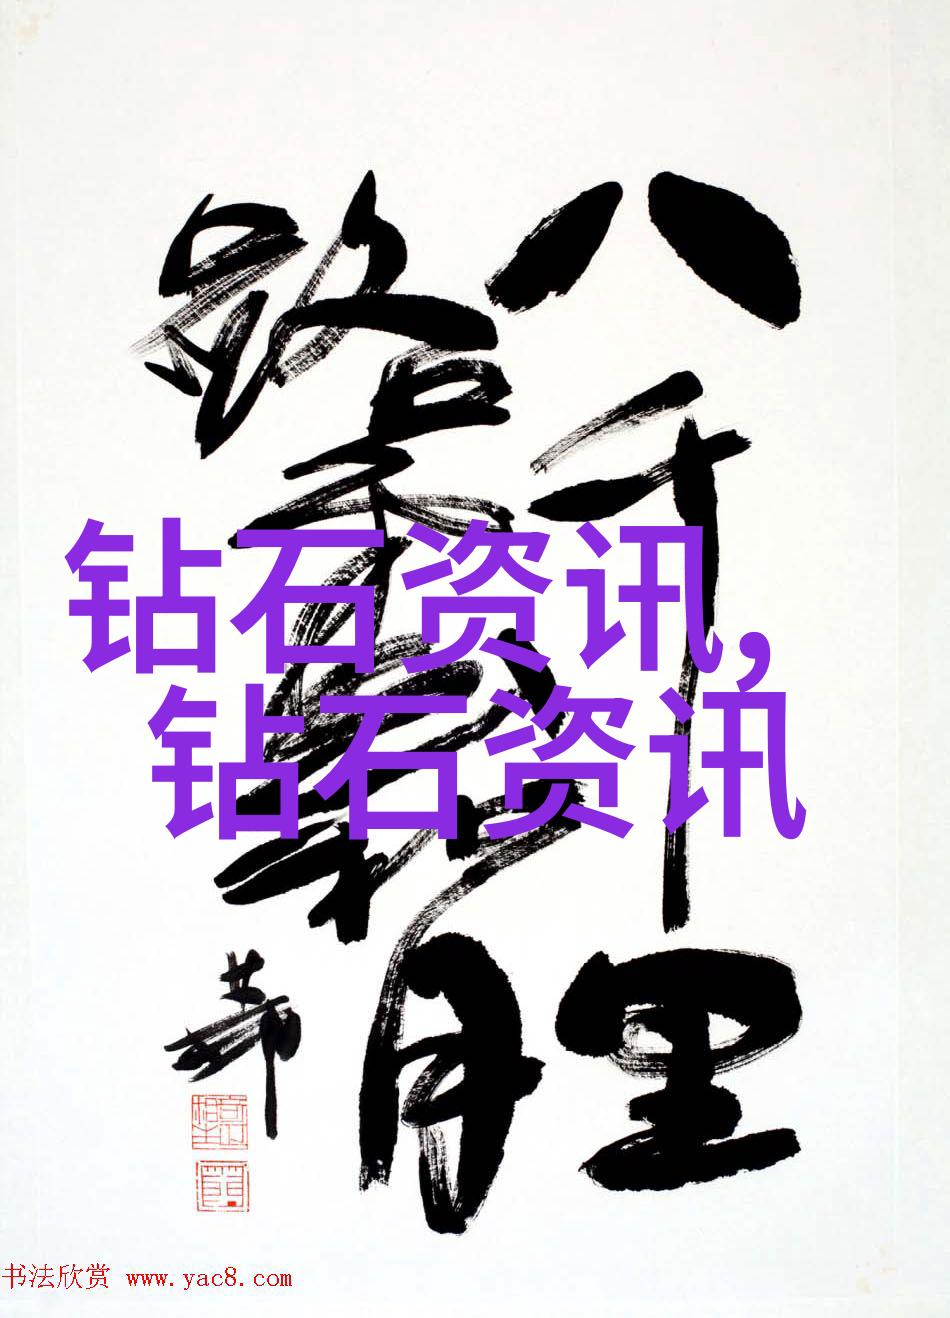 八千里
路雲和月
钻石资讯,
钻石资讯
书法欣赏 www.yac8.com